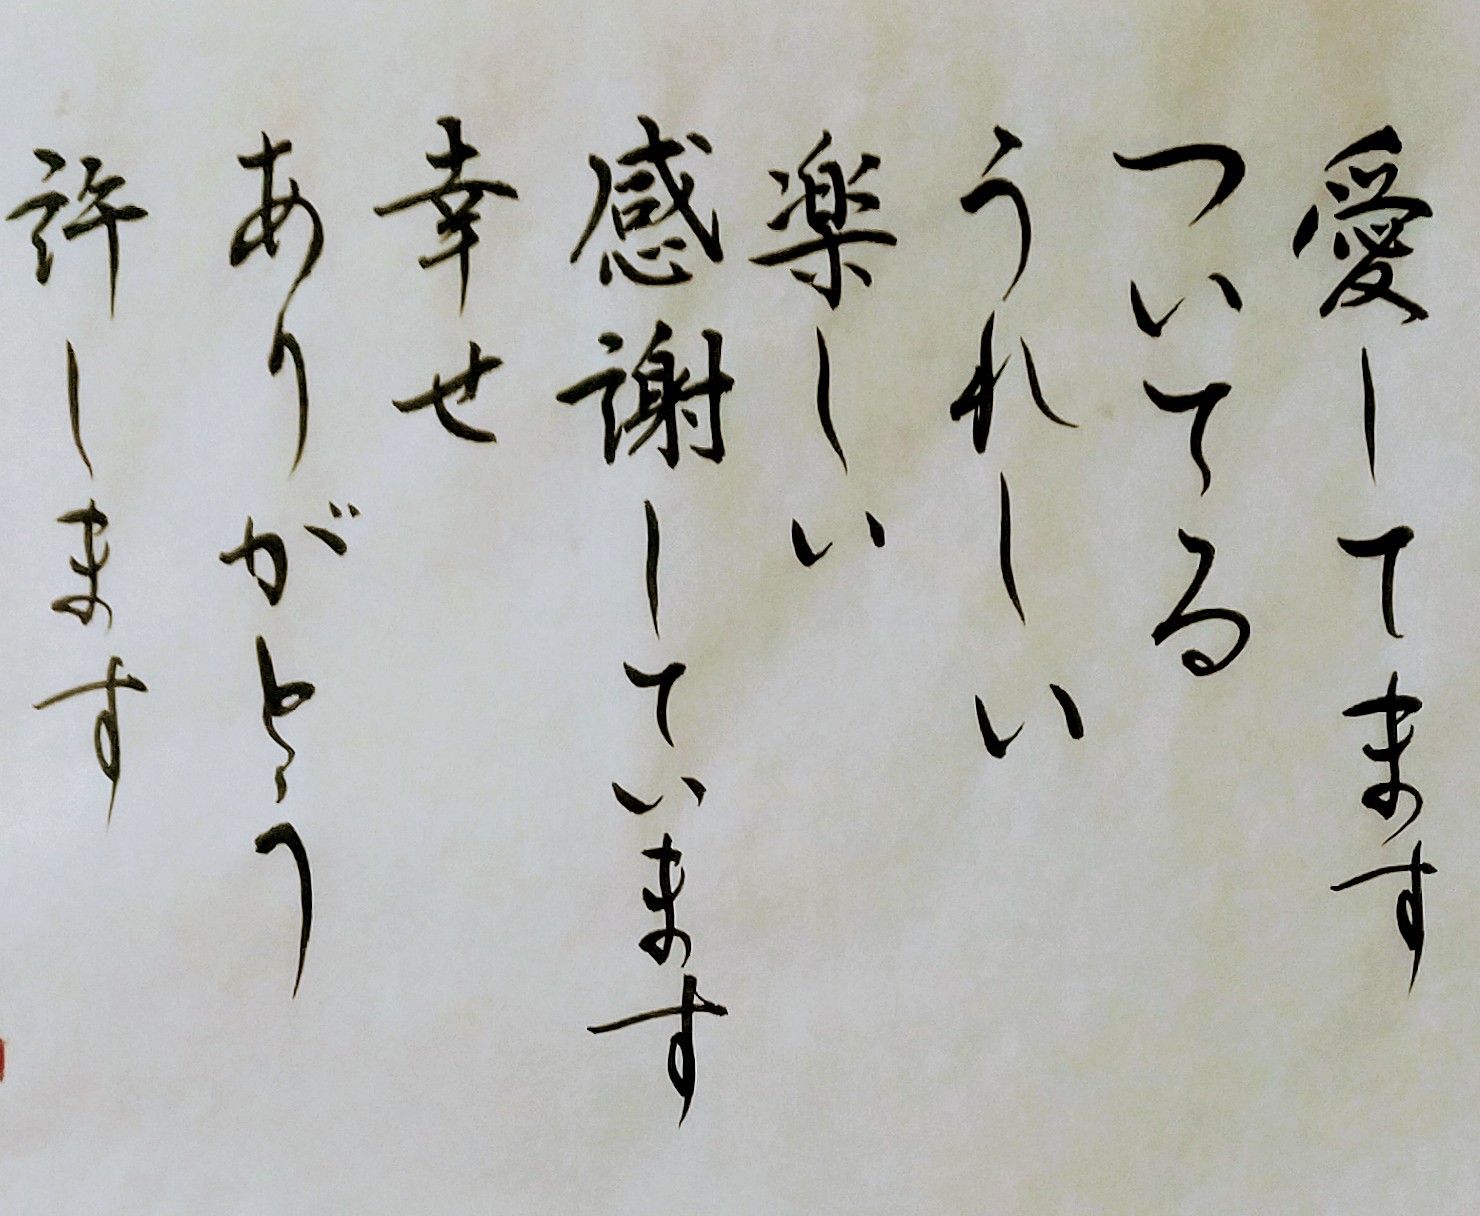 愛してます
ついてる
うれしい
楽しい
感謝しています
幸せ
ありがとう
許します